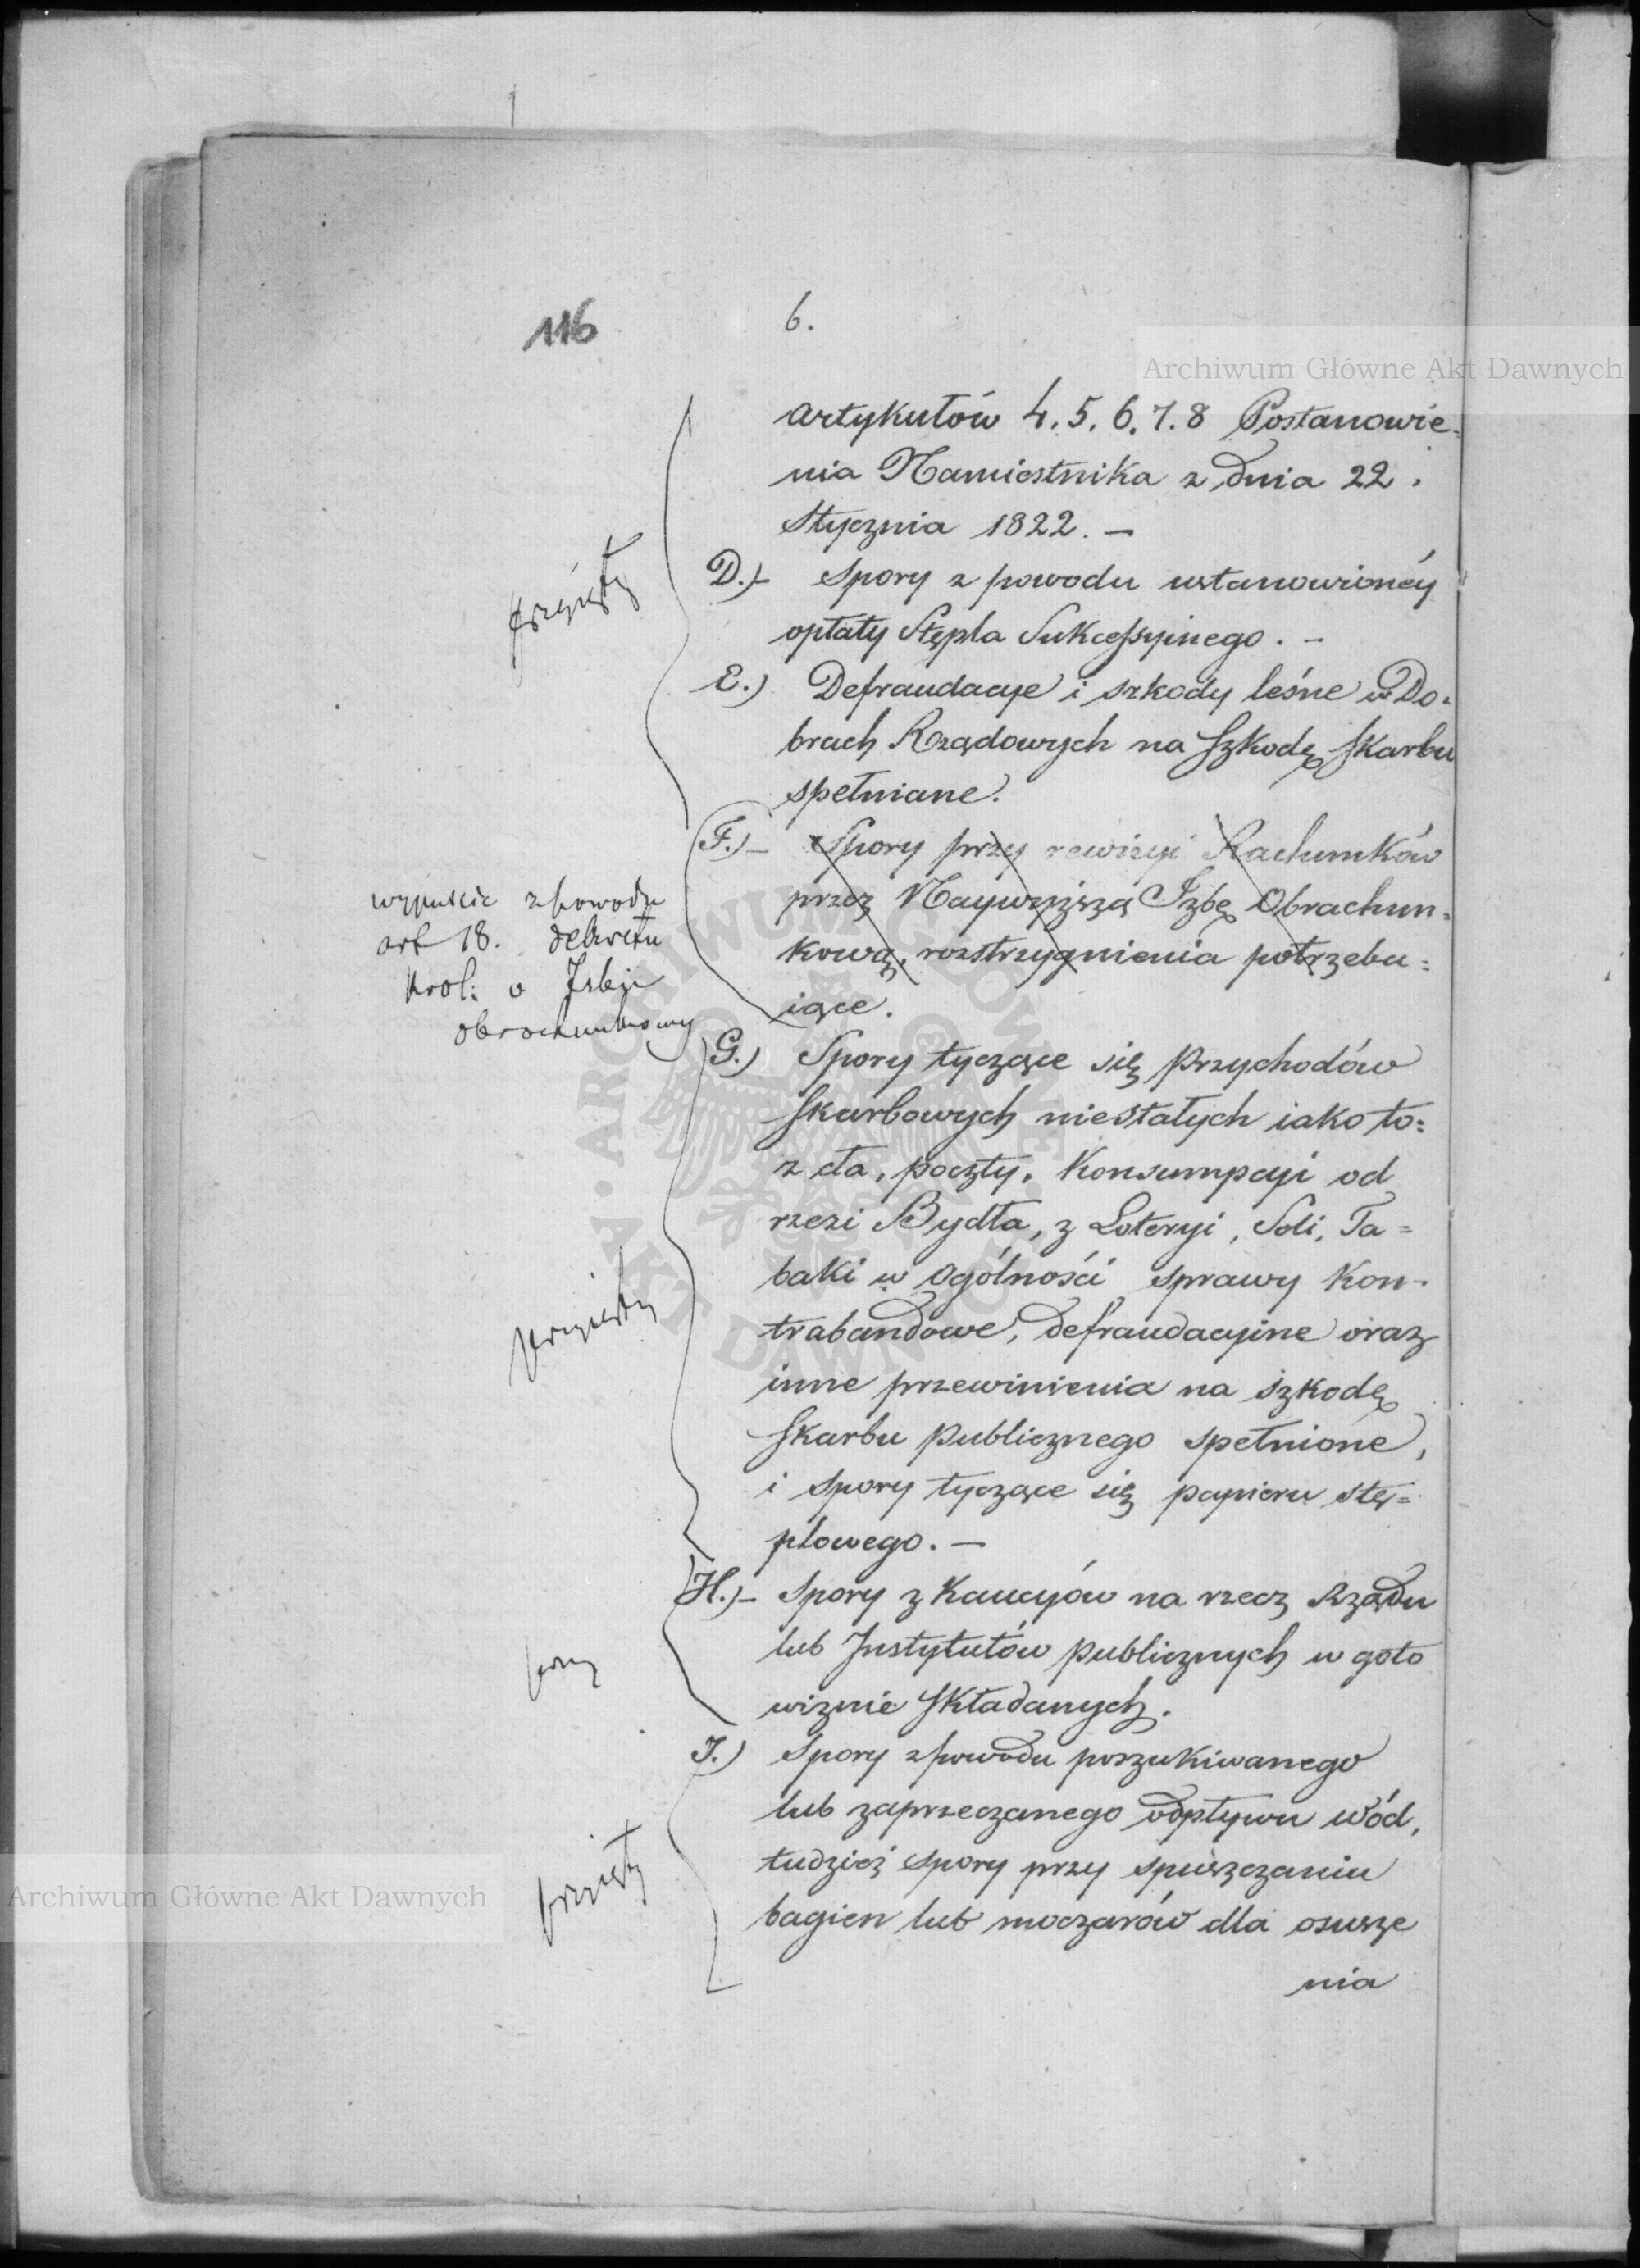 116
6.
Archiwum Główne Akt Dawnych
artykułów 4. 5. 6. 7. 8 Postanowie=
nia Namiestnika z dnia 22.
Stycznia 1822. —
przyięty
D.)- Spory z powodu ustanowionéy
opłaty Stępla Sukcessyinego. —
E.) Defraudacye i szkody leśne w Do=
brach Rządowych na Szkodę Skarbu
spełniane.
F.)- Spory przy rewizyi Rachunków
przez Naywyższą Izbę Obrachun=
kową, rozstrzygnienia potrzebu=
iące.
wypuścić z powodu
art 18. dekretu
Krol: o Izbie
obrachunkowy
G.) Spory tyczące się Przychodów
Skarbowych niestałych iako to=
z cła, poczty, Konsumpcyi od
rzezi Bydła, z Loteryi, Soli, Ta=
baki w ogólności sprawy Kon=
trabandowe, defraudacyine oraz
inne przewinienia na szkodę
Skarbu publicznego spełnione,
i spory tyczące się papieru stę=
plowego. —
przyięty
H.)- Spory z Kaucyów na rzecz Rządu
lub Instytutów publicznych w goto
wiznie Składanych.
I.) Spory z powodu poszukiwanego
lub zaprzeczanego odpływu wód,
tudzież spory przy spuszczaniu
bagien lub moczarów dla osusze
nia
przyięty
Archiwum Główne Akt Dawnych
ARCHIWUM GŁÓWNE • AKT DAWNYCH •